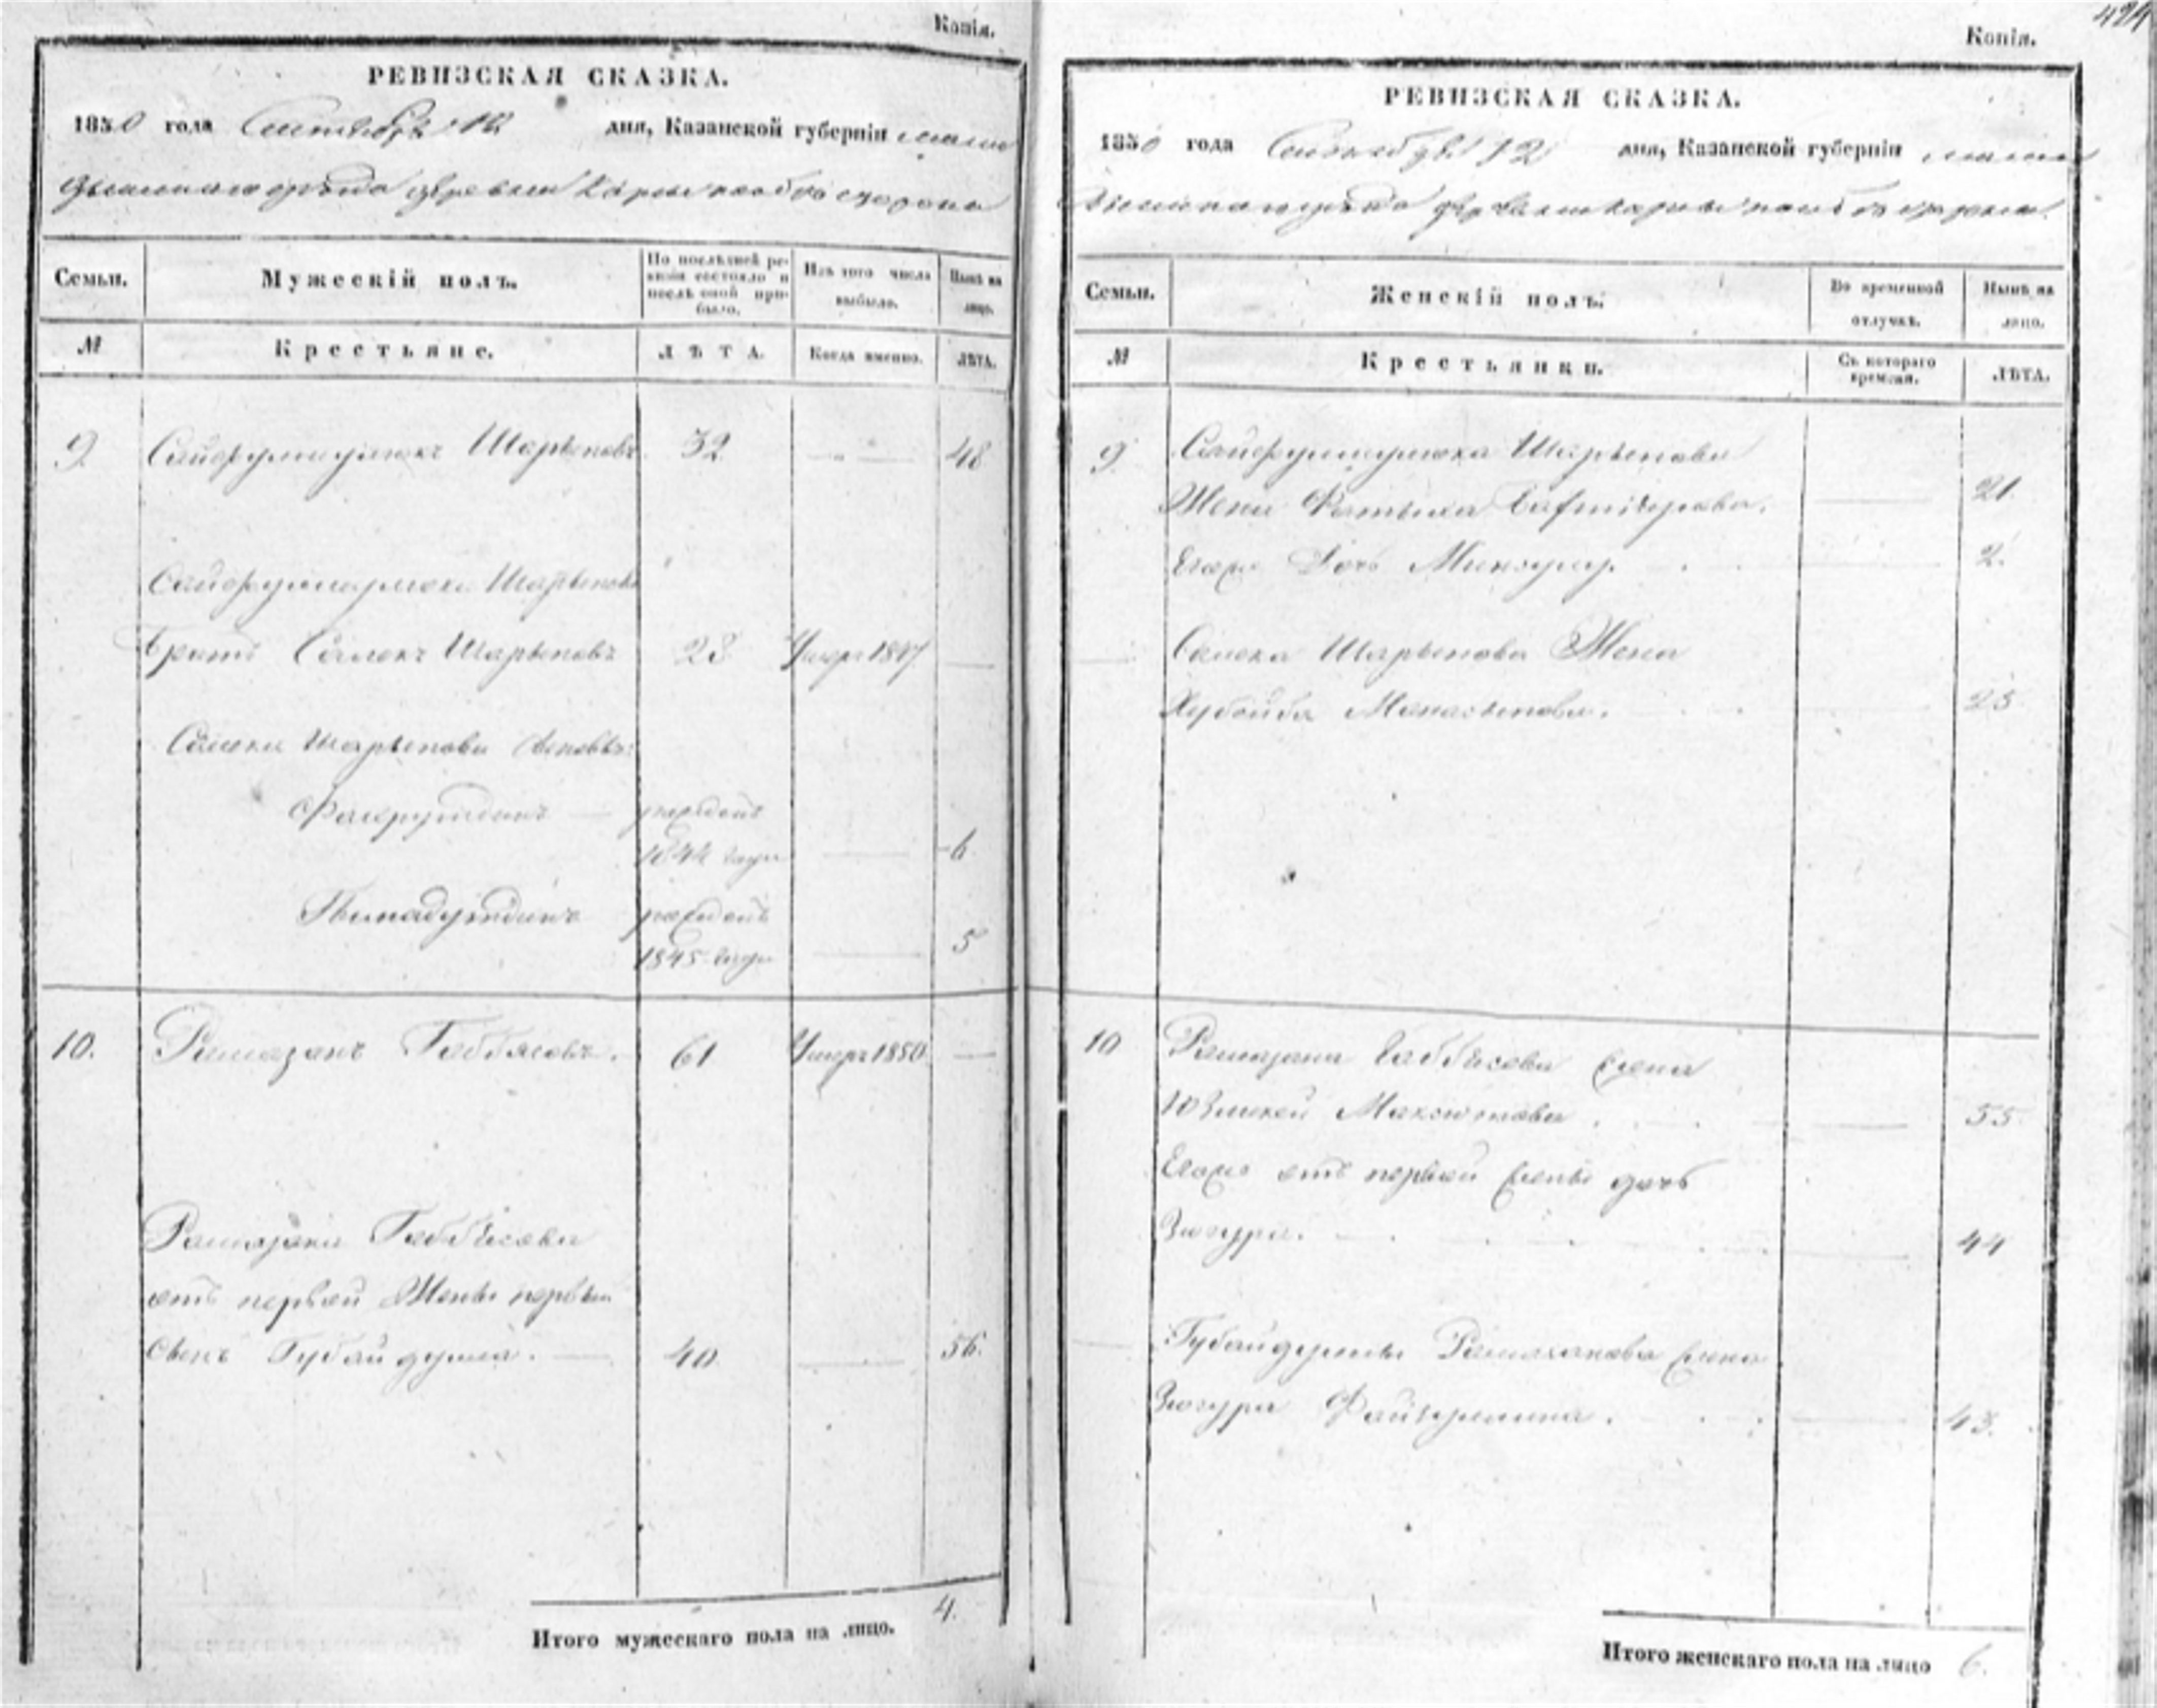 Копія.
РЕВИЗСКАЯ СКАЗКА.
1850 года Сентября 12 дня, Казанской губерніи
уѣзда деревни
Семьи.
Мужескій полъ.
По послѣдней ревизіи состояло и послѣ оной прибыло.
Изъ того числа выбыло.
Нынѣ на лицо.
№
Крестьяне.
ЛѢТА.
Когда именно.
ЛѢТА.
9. Сайфулмулюкъ Шарыповъ 32 48
Сайфулмулюка Шарыпова
братъ Самекъ Шарыповъ 28 Умеръ 1847
Самека Шарыпова сыновья:
Фахрутдинъ рожденъ
1844 года 6.
рожденъ
1845 года 5
10. Рамазанъ Габбясовъ. 61 Умеръ 1850
Рамазана Габбясова
отъ первой Жены первый
сынъ Губайдулла. 40 56.
Итого мужескаго пола на лицо. 4.
424
Копія.
РЕВИЗСКАЯ СКАЗКА.
1850 года Сентября 12 дня, Казанской губерніи
уѣзда деревни
Семьи.
Женскій полъ.
Во временной отлучкѣ.
Нынѣ на лицо.
№
Крестьянки.
Съ котораго времени.
ЛѢТА.
9. Сайфулмулюка Шарыпова
Жена Фатыха 21.
Егоже Дочь 2.
Самека Шарыпова Жена
25
10 Рамазана Габбясова жена
Максютова 55.
Егоже отъ первой жены дочь
Зюгура. 44
Губайдуллы Рамазанова жена
Зюгура Файзуллина. 43.
Итого женскаго пола на лицо 6.